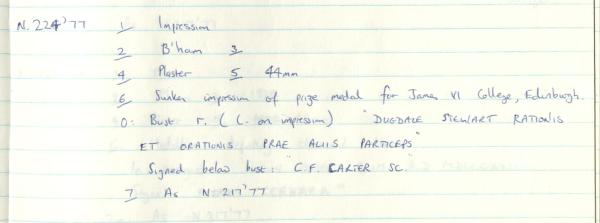 N. 224'77 1 Impression
2 B'ham 3
4 Plaster 5 44mm
6 Sunken impression of prize medal for James VI College, Edinburgh.
O: Bust r. (l. on impression) "DUGDALE STEWART RATIONIS
ET ORATIONIS PRAE ALIIS PARTICEPS"
Signed below bust: "C.F. CARTER SC."
7 As N 217'77